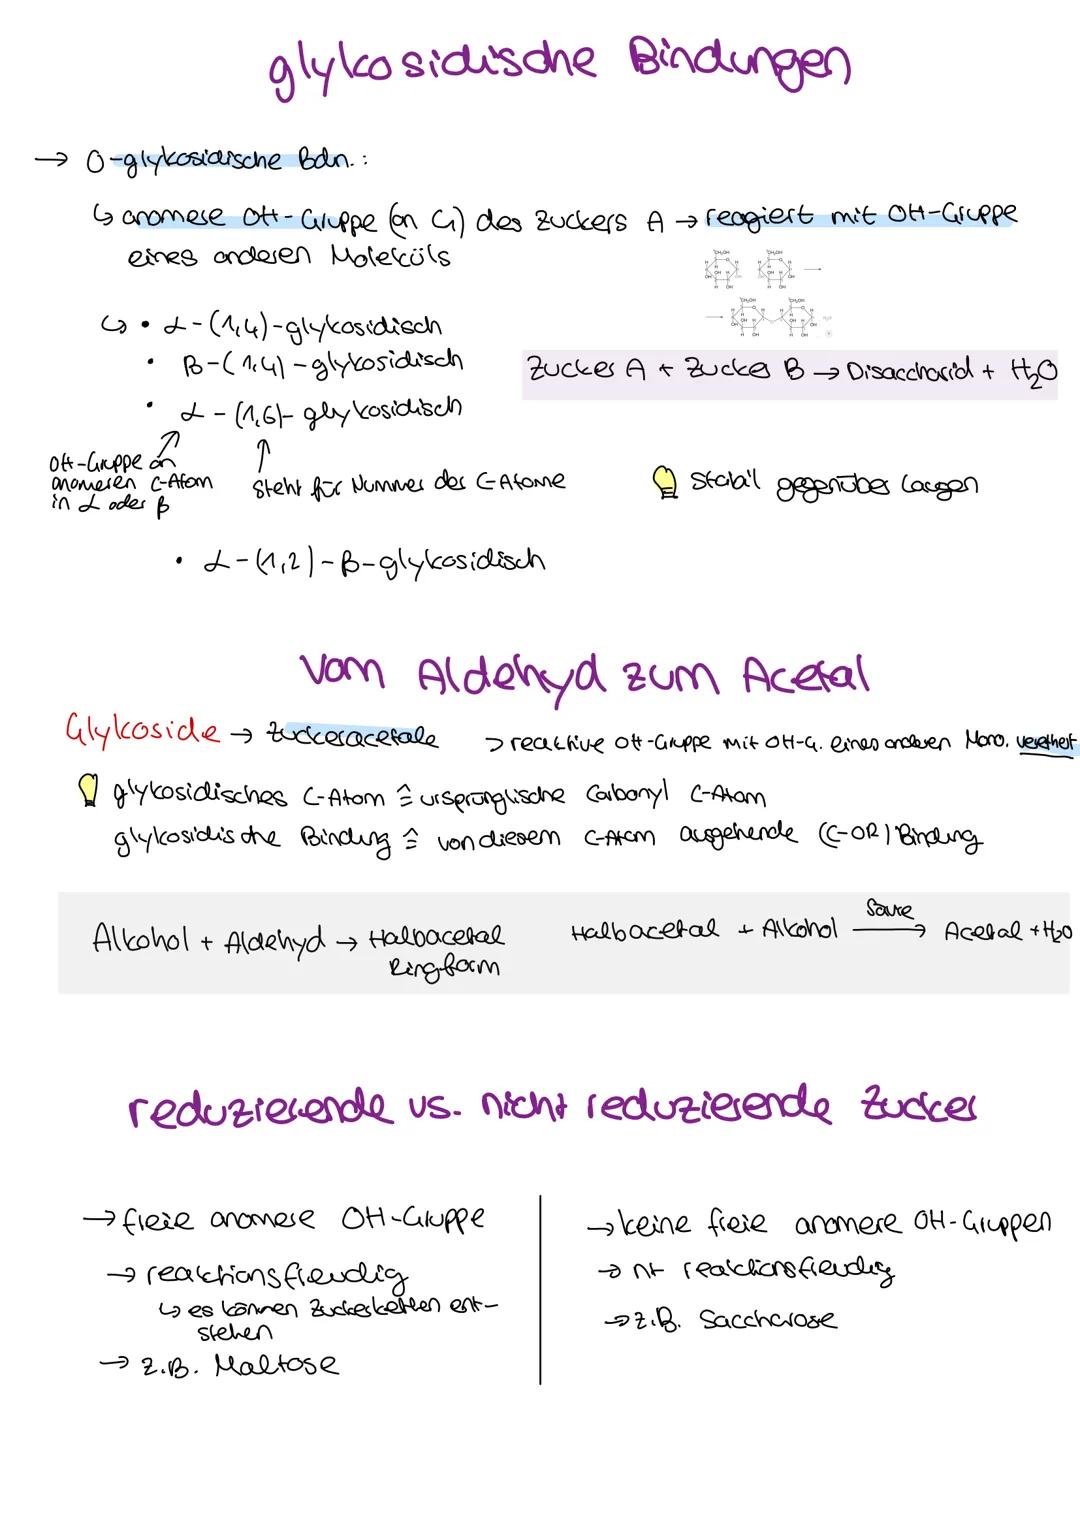 glykosidische Bindungen
→ O-glykosidische Bdn.:
↳ anomere OH-Gruppe (an C₁) des Zuckers A → reagiert mit OH-Gruppe
eines anderen Moleküls
↳ • α-(1,4)-glykosidisch
• β-(1,4)-glykosidisch
Zucker A + Zucker B → Disaccharid + H₂O
• α-(1,6)-glykosidisch
OH-Gruppe an
anomeren C-Atom
in α oder β
steht für Nummer des C-Atome
Stabil gegenüber Laugen
• α-(1,2)-β-glykosidisch
Vom Aldehyd zum Acetal
Glykoside → Zuckeracetale
> reaktive OH-Gruppe mit OH-G. eines anderen Mono. verethert
glykosidisches C-Atom ≙ ursprünglische Carbonyl C-Atom
glykosidische Bindung ≙ von diesem C-Atom ausgehende (C-OR) Bindung
Alkohol + Aldehyd → Halbacetal
Ringform
Halbacetal + Alkohol → Acetal + H₂O
Säure
reduzierende vs. nicht reduzierende Zucker
→ freie anomere OH-Gruppe
→ reaktionsfreudig
↳ es können Zuckerketten ent-
stehen
→ z.B. Maltose
→ keine freie anomere OH-Gruppen
→ nt reaktionsfreudig
→ z.B. Saccharose